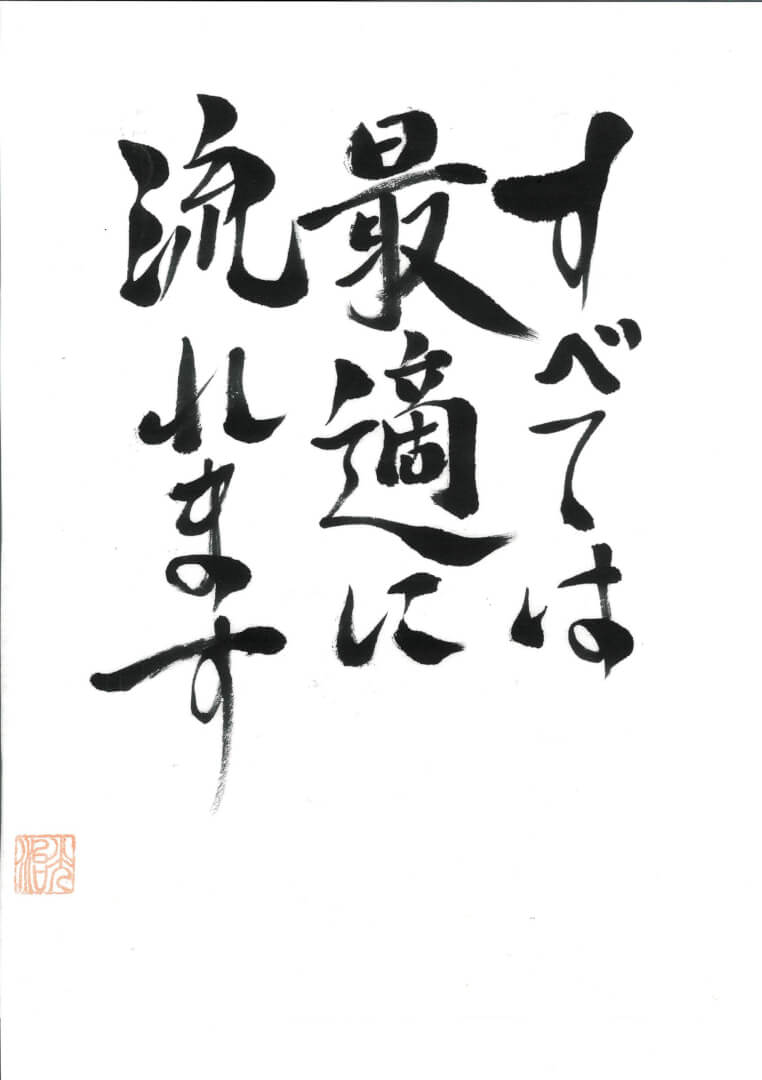 すべては
最適に
流れます